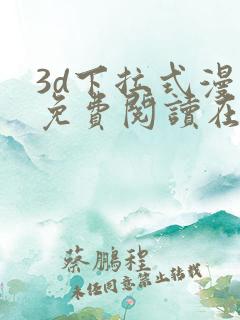 3d下拉式漫
免費閱讀在
蔡鵬程
未经同意禁止转载